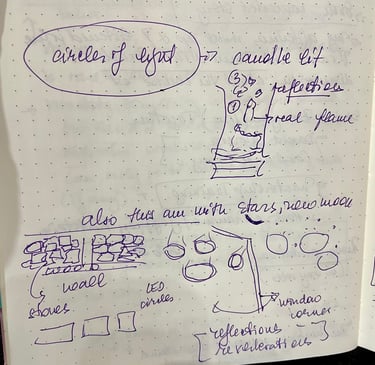 circles of light → candle lit
(3)
(2) reflections
(1)
real flame
also this am with stars, new moon
wood
wall
stones
LED
circles
window
corner
[reflections –
reverberations]